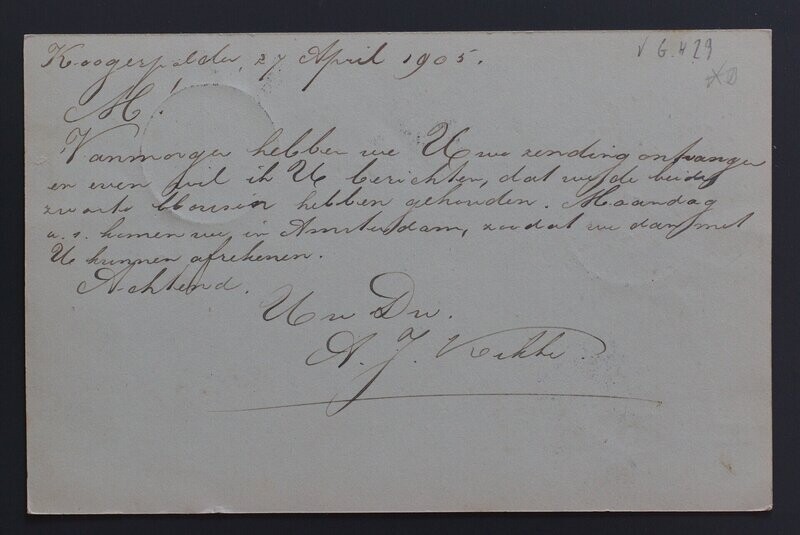 Koogerpolder, 27 April 1905.
V G.H 29
M!
Vanmorgen hebben we Uwe zending ontvangen
en even wil ik U berichten, dat we de beide
zwarte blousen hebben gehouden. Maandag
a.s. komen we in Amsterdam, zoodat we dan met
U kunnen afrekenen.
Achtend.
Uw Dw.
A. J.